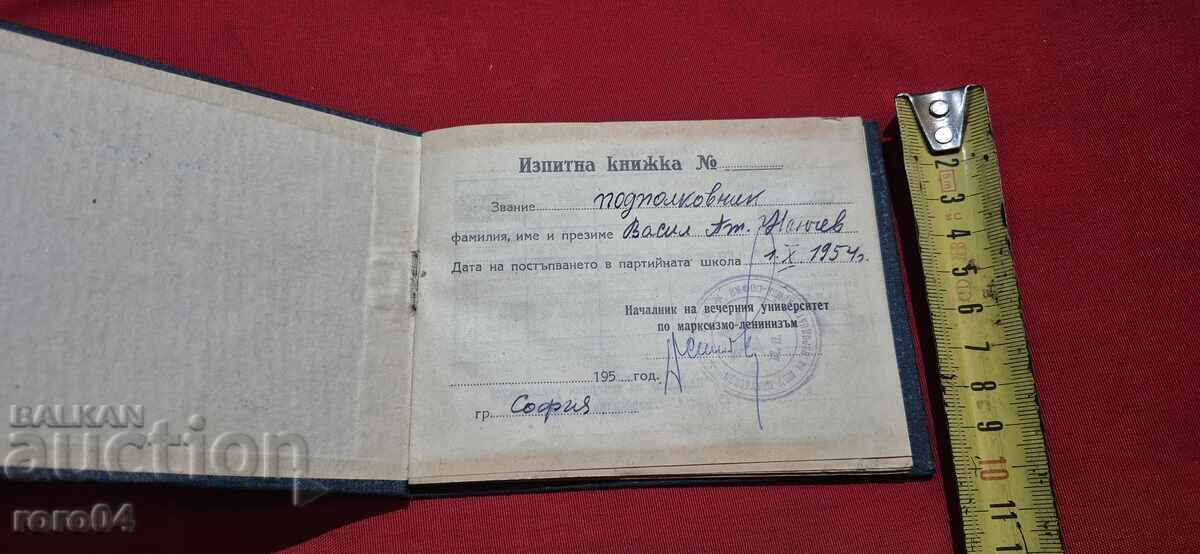 Изпитна книжка №
Звание подполковник
фамилия, име и презиме Васил Ат.
Дата на постъпването в партийната школа 1. X 1954 г.
Началник на вечерния университет
по марксизмо-ленинизъм
195 год.
гр. София
BALKAN
auction
roro04
2
3
4
5
6
7
8
9
10
11